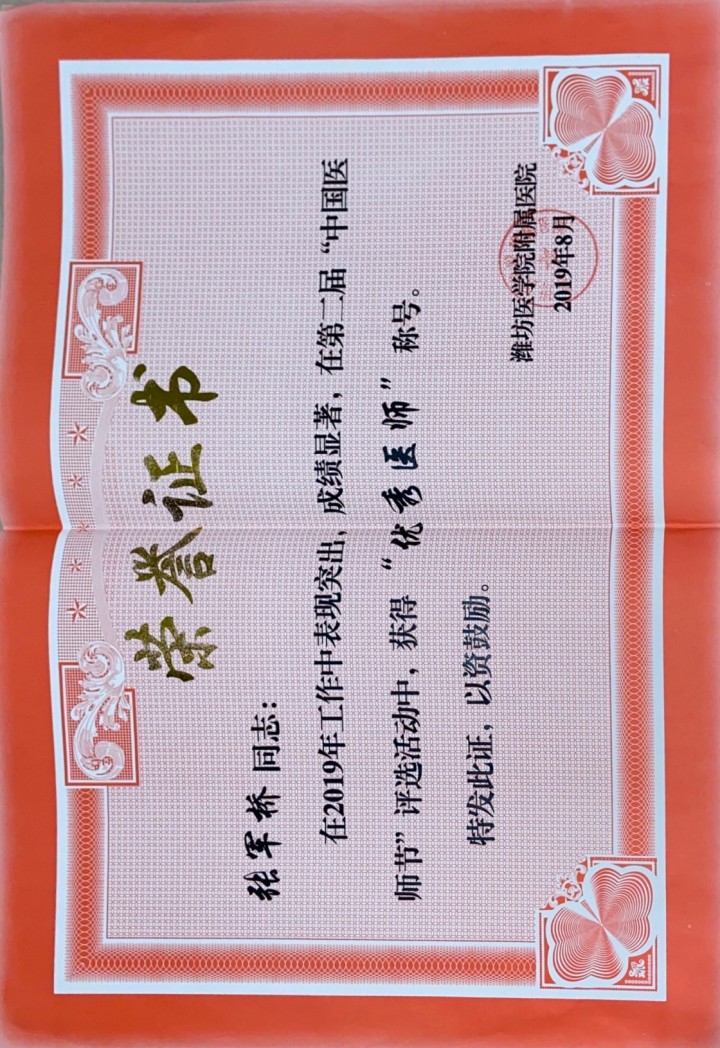 荣誉证书
张军桥 同志：
在2019年工作中表现突出，成绩显著，在第二届“中国医
师节”评选活动中，获得 “优秀医师” 称号。
特发此证，以资鼓励。
潍坊医学院附属医院
2019年8月